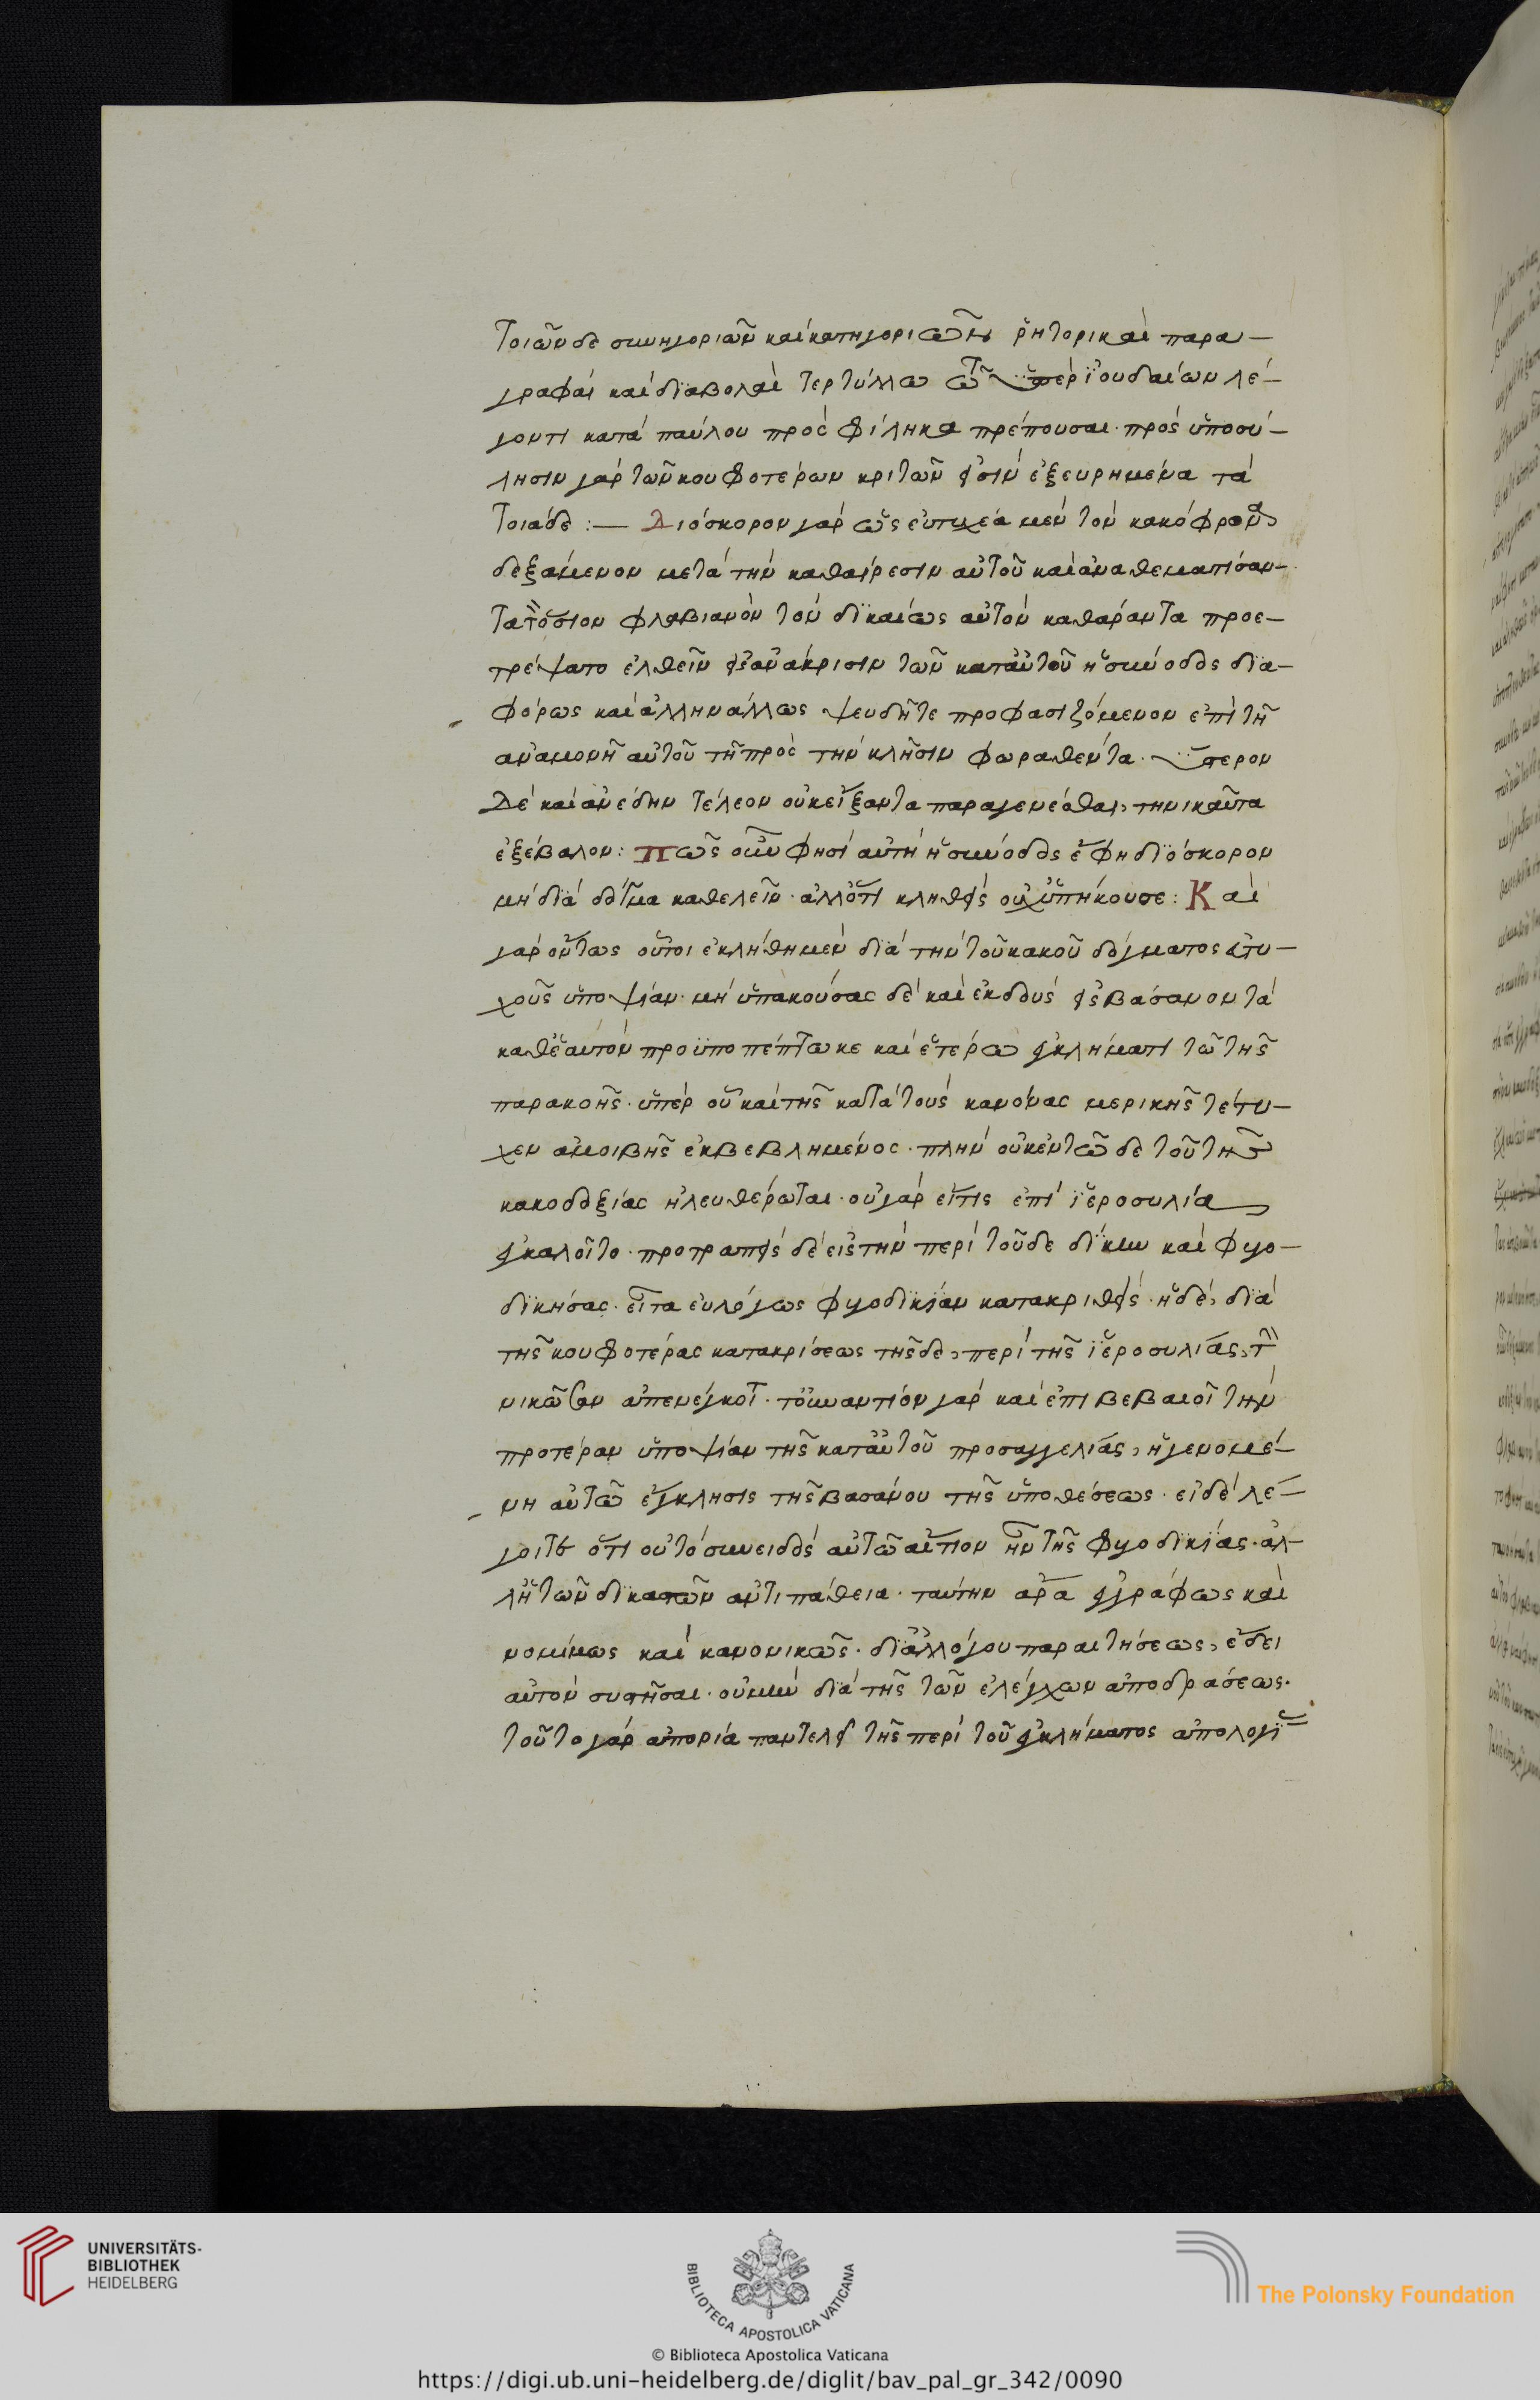 τοιῶνδε συνηγοριῶν καὶ κατηγοριῶν ῥητορικαὶ παρα-
γραφαὶ καὶ διαβολαὶ τερτύλλω τῶ ὑπὲρ ἰουδαίων λέ-
γοντι κατὰ παύλου πρὸς φίληκα πρέπουσαι· πρὸς ὑποσύ-
λησιν γὰρ τῶν κουφοτέρων κριτῶν εἰσὶν ἐξευρημένα τὰ
τοιάδε :— Διόσκορον γὰρ ὡς εὐτυχέα μὲν τὸν κακόφρονα
δεξάμενον μετὰ τὴν καθαίρεσιν αὐτοῦ καὶ ἀναθεματίσαν-
τα τὸν ὅσιον φλαβιανὸν τὸν δικαίως αὐτὸν καθάραντα προε-
τρέψατο ἐλθεῖν εἰς ἀνάκρισιν τῶν κατ' αὐτοῦ ἡ σύνοδος δια-
φόρως καὶ ἄλλην ἄλλως ψευδῆ τε προφασιζόμενον ἐπὶ τῆ
ἀναμονῆ αὐτοῦ τῆ πρὸς τὴν κλῆσιν φωραθέντα· ὕστερον
δὲ καὶ ἀνέδην τέλεον οὐκ εἴξαντα παραγενέσθαι, τηνικαῦτα
ἐξέβαλον : Πῶς οὖν φησὶ αὐτὴ ἡ σύνοδος ἔφη διόσκορον
μὴ διὰ δόγμα καθελεῖν· ἀλλ' ὅτι κληθεὶς οὐχ ὑπήκουσε : Καὶ
γὰρ ὄντως οὗτοι ἐκλήθη μὲν διὰ τὴν τοῦ κακοῦ δόγματος εὐτυ-
χοῦς ὑποψίαν· μὴ ὑπακούσας δὲ καὶ ἐκδοὺς εἰς βάσανον τὰ
καθ' ἑαυτὸν προϋποπέπτωκε καὶ ἑτέρω ἐγκλήματι τῶ τῆς
παρακοῆς· ὑπὲρ οὗ καὶ τῆς κατὰ τοὺς κανόνας μερικῆς τέτυ-
χεν ἀμοιβῆς ἐκβεβλημένος· πλὴν οὐκ ἐν τῶδε τοῦ τῆς
κακοδοξίας ἠλευθέρωται· οὐ γὰρ εἴ τις ἐπὶ ἱεροσυλία
ἐγκαλοῖτο· προτραπεὶς δὲ εἰς τὴν περὶ τοῦδε δίκην καὶ φυγο-
δικήσας· εἶτα εὐλόγως φυγοδικίαν κατακριθείς· ἤδε, διὰ
τῆς κουφοτέρας κατακρίσεως τῆσδε, περὶ τῆς ἱεροσυλίας, τὴν
νικῶσαν ἀπενέγκοι· τὸ ἐναντίον γὰρ καὶ ἐπιβεβαιοῖ τὴν
προτέραν ὑποψίαν τῆς κατ' αὐτοῦ προσαγγελίας, ἡ γενομέ-
νη αὐτῶ ἔγκλησις τῆς βασάνου τῆς ὑποθέσεως· εἰ δὲ λέ-
γοιτο ὅτι οὐ τὸ συνειδὸς αὐτῶ αἴτιον ἦν τῆς φυγοδικίας· ἀλ-
λ' ἡ τῶν δικαστῶν ἀντιπάθεια· ταύτην ἄρα ἐγγράφως καὶ
νομίμως καὶ κανονικῶς· δι' ἀλλόγου παραιτήσεως, ἔδει
αὐτὸν συστῆσαι· οὐ μὴν διὰ τῆς τῶν ἐλέγχων ἀποδράσεως·
τοῦτο γὰρ ἀπορία παντελεῖ τῆς περὶ τοῦ ἐγκλήματος ἀπολογί
UNIVERSITÄTS-
BIBLIOTHEK
HEIDELBERG
BIBLIOTECA APOSTOLICA VATICANA
The Polonsky Foundation
© Biblioteca Apostolica Vaticana
https://digi.ub.uni-heidelberg.de/diglit/bav_pal_gr_342/0090